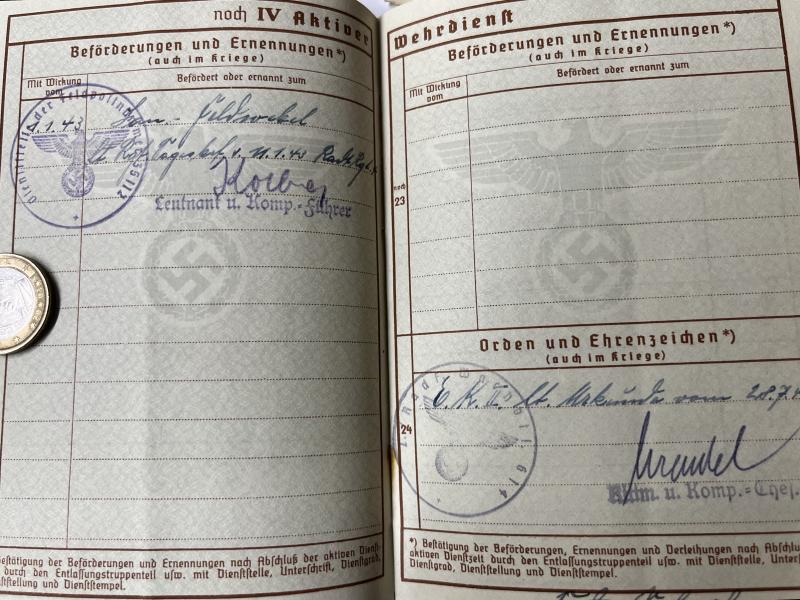 noch IV Aktiver
Beförderungen und Ernennungen*)
(auch im Kriege)
Mit Wirkung
vom
Befördert oder ernannt zum
1.1.43 Feldwebel
lt.
Leutnant u. Komp.-Führer
Bestätigung der Beförderungen und Ernennungen nach Abschluß der aktiven Dienst-
durch den Entlassungstruppenteil usw. mit Dienststelle, Unterschrift, Dienstgrad,
Dienststellung und Dienststempel.
Wehrdienst
Beförderungen und Ernennungen*)
(auch im Kriege)
Mit Wirkung
vom
Befördert oder ernannt zum
noch
23
Orden und Ehrenzeichen*)
(auch im Kriege)
24
E.K.II. lt. Urkunde vom 28.7.4
Komp.-Chef.
*) Bestätigung der Beförderungen, Ernennungen und Verleihungen nach Abschluß
aktiven Dienstzeit durch den Entlassungstruppenteil usw. mit Dienststelle, Unterschrift,
Dienstgrad, Dienststellung und Dienststempel.